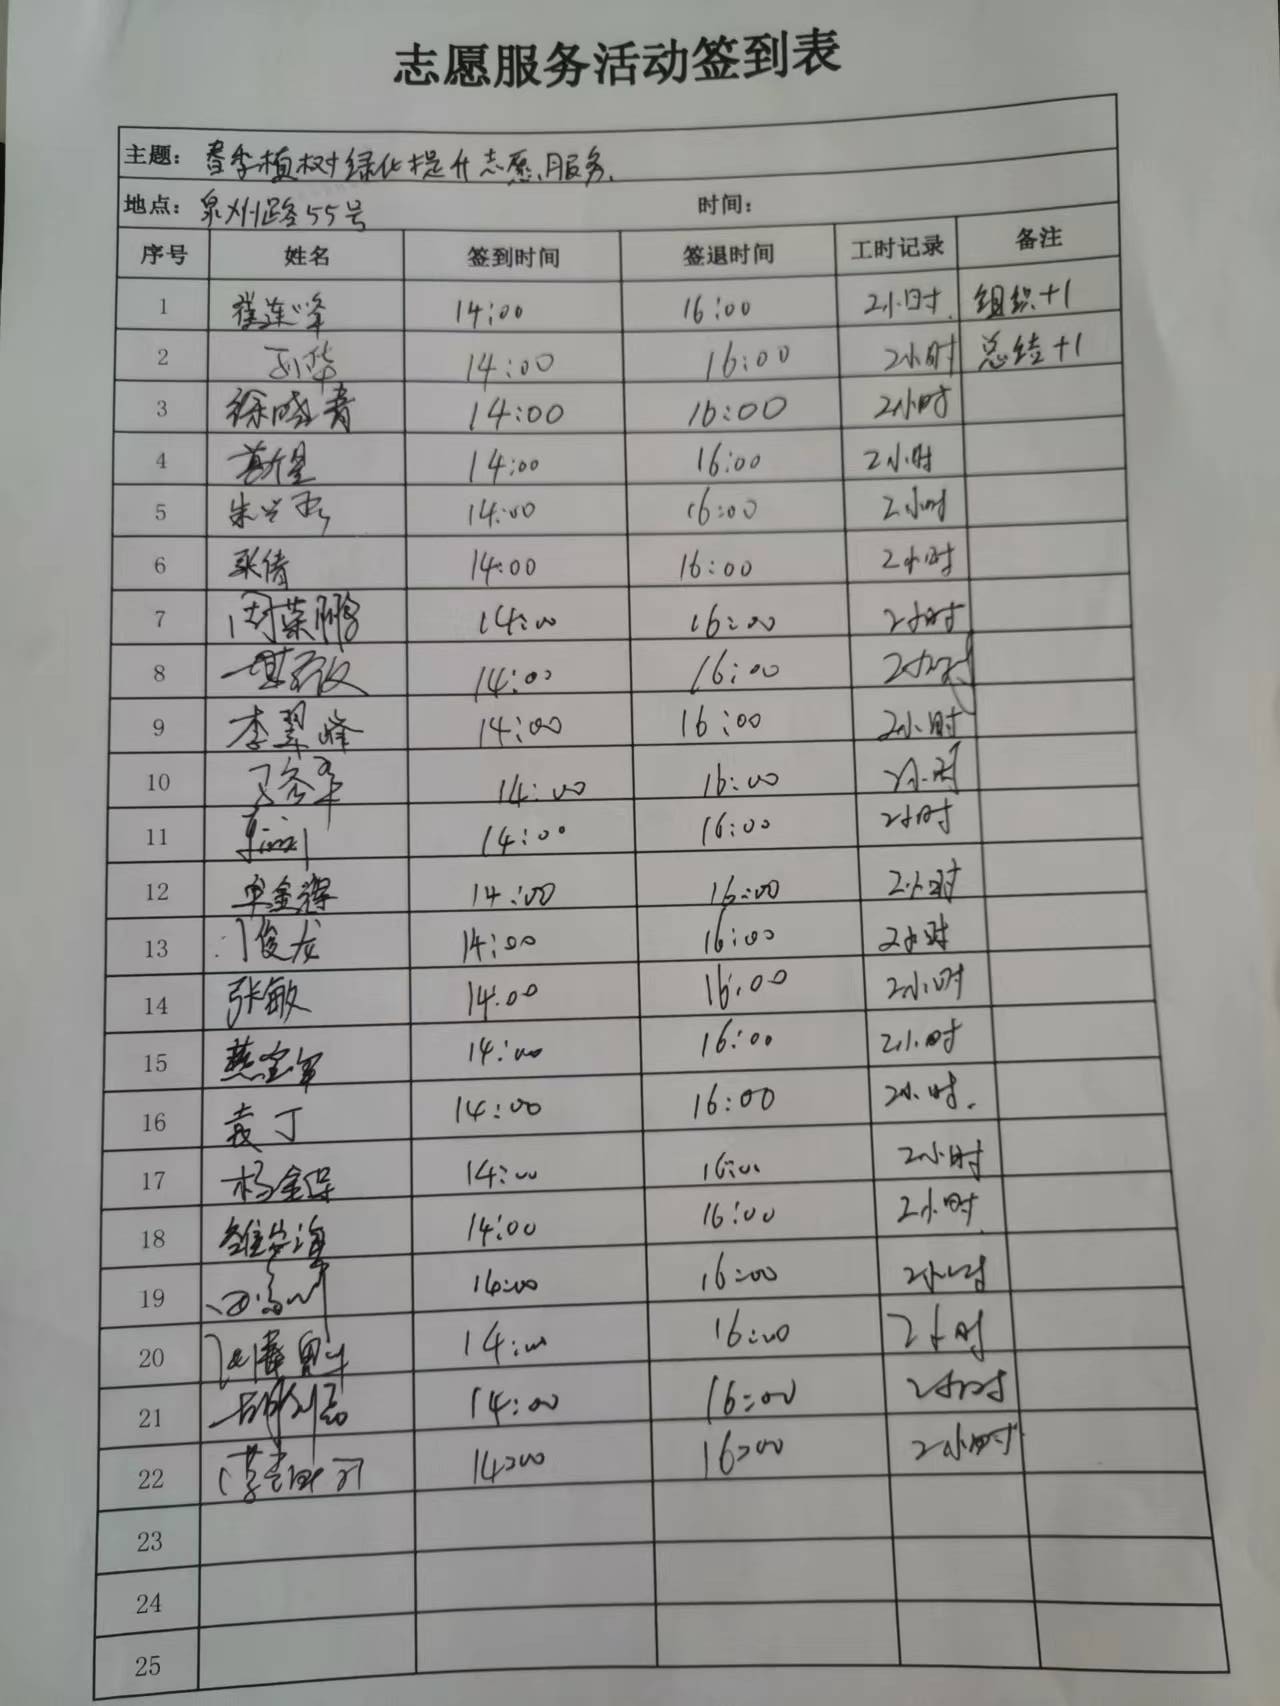 志愿服务活动签到表
主题：春季植树绿化提升志愿服务.
地点：泉州路55号 时间：
序号 姓名 签到时间 签退时间 工时记录 备注
1 崔连峰 14:00 16:00 2小时. 组织+1
2 孙华 14:00 16:00 2小时 总结+1
3 徐晓青 14:00 16:00 2小时
4 14:00 16:00 2小时
5 14:00 16:00 2小时
6 张倩 14:00 16:00 2小时
7 周荣鹏 14:00 16:00 2小时
8 14:00 16:00 2小时
9 李翠峰 14:00 16:00 2小时
10 14:00 16:00 2小时
11 14:00 16:00 2小时
12 单金辉 14:00 16:00 2小时
13 门俊龙 14:00 16:00 2小时
14 张敏 14:00 16:00 2小时
15 燕宝军 14:00 16:00 2小时
16 袁丁 14:00 16:00 2小时.
17 杨金保 14:00 16:00 2小时
18 14:00 16:00 2小时
19 16:00 16:00 2小时
20 14:00 16:00 2小时
21 14:00 16:00 2小时
22 14:00 16:00 2小时
23
24
25